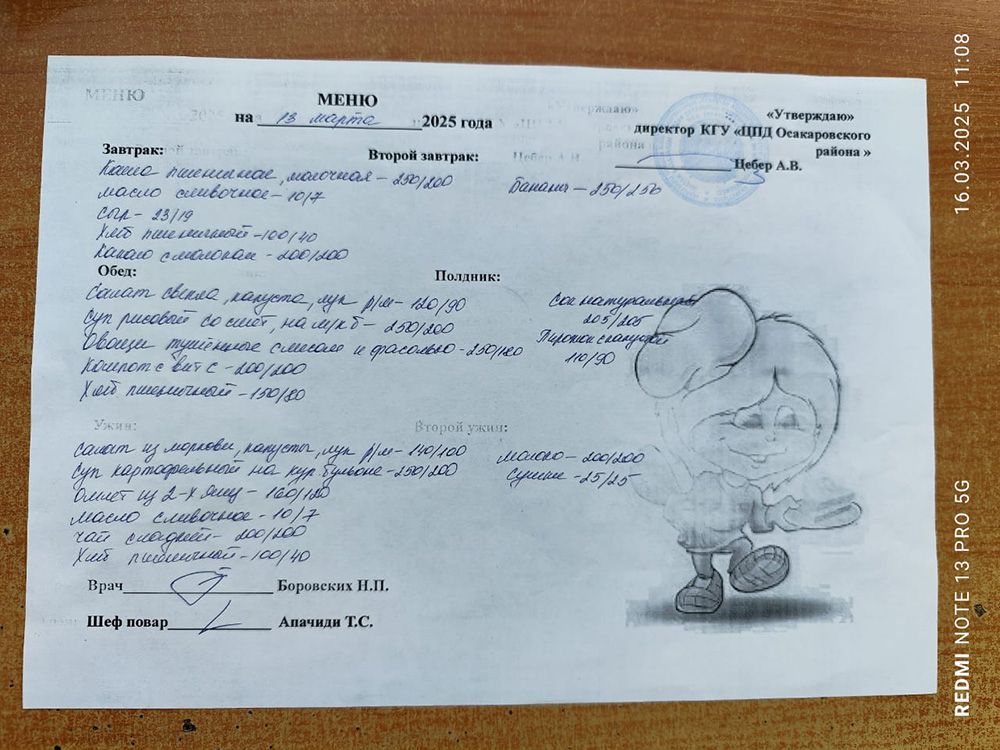 МЕНЮ
на 13 марта 2025 года
«Утверждаю»
директор КГУ «ЦПД Осакаровского
района »
Цебер А.В.
Завтрак:
Каша пшеничная, молочная - 250/200
масло сливочное - 10/7
сыр - 23/19
Хлеб пшеничный - 100/40
Какао с молоком - 200/200
Второй завтрак:
Бананы - 250/250
Обед:
Салат свекла, капуста, лук р/м - 120/90
Суп рисовый со смет, на м/к б - 250/200
Овощи тушённые с мясом и фасолью - 250/180
Компот с вит С - 200/200
Хлеб пшеничный - 150/80
Полдник:
Сок натуральный
205/205
Пирожки с капустой
110/90
Ужин:
салат из моркови, капусты, лук р/м - 140/100
Суп картофельный на кур. бульоне - 250/200
Омлет из 2-х яиц - 160/120
масло сливочное - 10/7
чай сладкий - 200/200
Хлеб пшеничный - 100/40
Второй ужин:
молоко - 200/200
Сушки - 25/25
Врач Боровских Н.П.
Шеф повар Апачиди Т.С.
МЕНЮ
«Утверждаю»
района
Цебер А.В.
16.03.2025 11:08
REDMI NOTE 13 PRO 5G